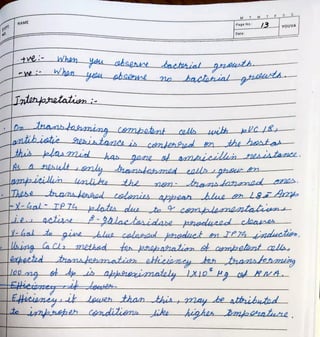 NAME
M T W T F S S
Page No.: 13
Date:
YOUVA
+ve :- When you observe bacterial growth.
-ve :- When you observe no bacterial growth.
Interpretation :-
On transforming competent cells with pUC 18,
antibiotic resistance is conferred on the host as
this plasmid has gene of ampicillin resistance.
As a result, only transformed cells grow on
ampicillin unlike the non-transformed ones.
These transformed colonies appear blue on LB Amp
-X-Gal-IPTG plates due to α complementation
i.e., active β-galactosidase produced cleaves
X-Gal to give blue colored product on IPTG induction.
Using CaCl2 method for preparation of competent cells,
expected transformation efficiency for transforming
100 ng of is approximately 1X10 µg of DNA.
Efficiency, if lower
Efficiency, if lower than this, may be attributed
to improper conditions like higher temperature.